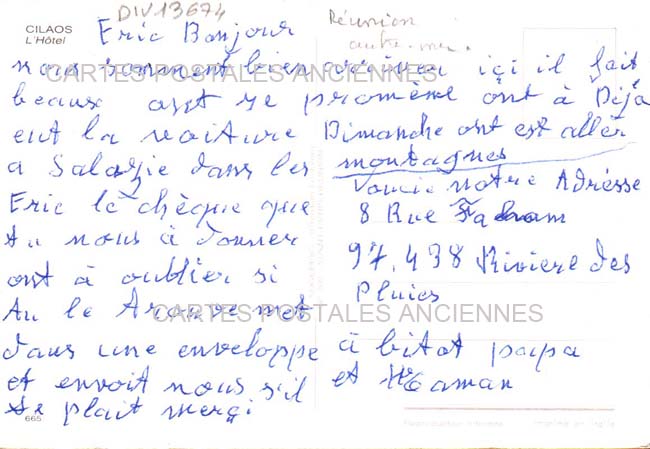 DIV13674
Réunion
outre-mer.
CILAOS
L'Hôtel
Eric Bonjour
nous somment bien arriver içi il fait
beaux ont se promène ont à Déjà
eut la voiture Dimanche ont est aller
a Salazie dans les montagnes
Eric le chèque que
tu nous à donner
ont à oublier si
tu le trouve met
dans une enveloppe
et envoit nous s'il
te plait merçi
Voncie notre Adrèsse
8 Rue
97.438 Rivière des
Pluies
à bitot papa
et Maman
665
CARTES POSTALES ANCIENNES
CARTES POSTALES ANCIENNES